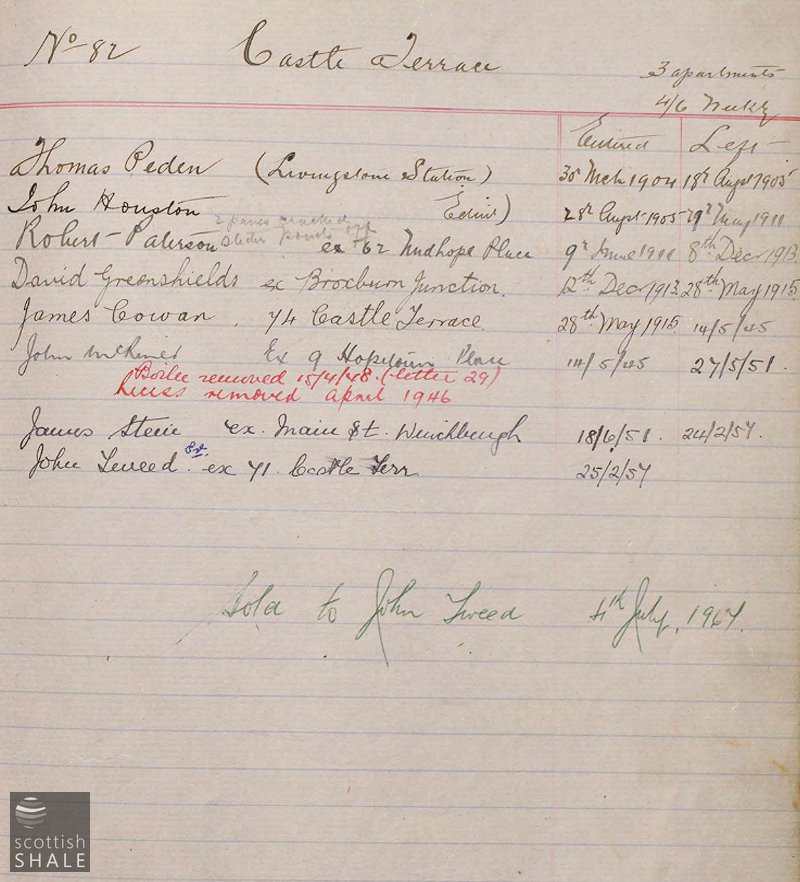 No 82 Castle Terrace
3 apartments
4/6 Weekly
Entered Left
Thomas Peden (Livingstone Station) 30 Mch 1904 18th Augst 1905
John Houston Edinr) 28th Augst 1905 29th May 1911
2 panes cracked
Robert Paterson points off ex 62 Niddry Place 9th June 1911 8th Decr 1913
David Greenshields ex Broxburn Junction. 12th Decr 1913 28th May 1915
James Cowan, 74 Castle Terrace. 28th May 1915 14/5/45
John Ex 9 Hopetoun Place 14/5/45 27/5/51.
Boiler removed 15/4/48. (letter 29)
removed April 1946
James Steele ex. Main St. Winchburgh 18/6/51. 24/2/57.
John Tweed Sr. ex 71 Castle Terr 25/2/57
Sold to John Tweed 4th July, 1967.
scottish
SHALE